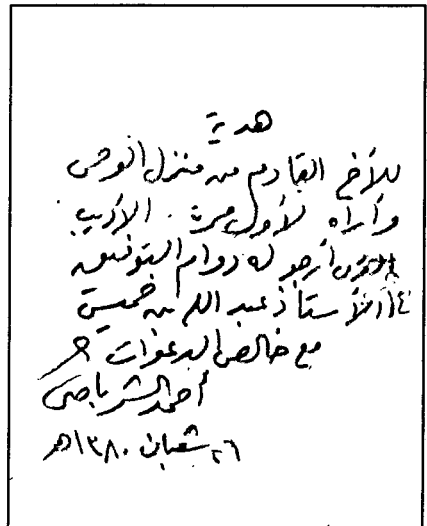 هدية
للأخ القادم من منزل الوحى
وأراه لأول مرة الأديب
أرجو له دوام التوفيق
الأستاذ عبد الله بن خميس
مع خالص الدعوات
أحمد الشرباصى
٢٦ شعبان ١٣٨٠هـ